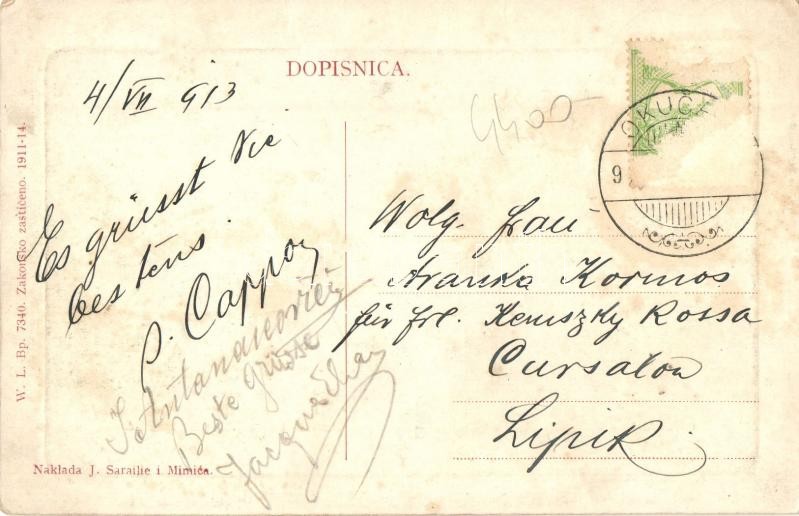 DOPISNICA.
4/VII 913
4400-
OKUČ
9
Es grüsst Sie
bestens
Wolg. Frau
Aranka Kormos
für Frl. Rossa
Cursalon
Lipik
Beste Grüsse
W. L. Bp. 7340. Zakonsko zaštićeno. 1911-14.
Naklada J. Sarailie i Mimića.